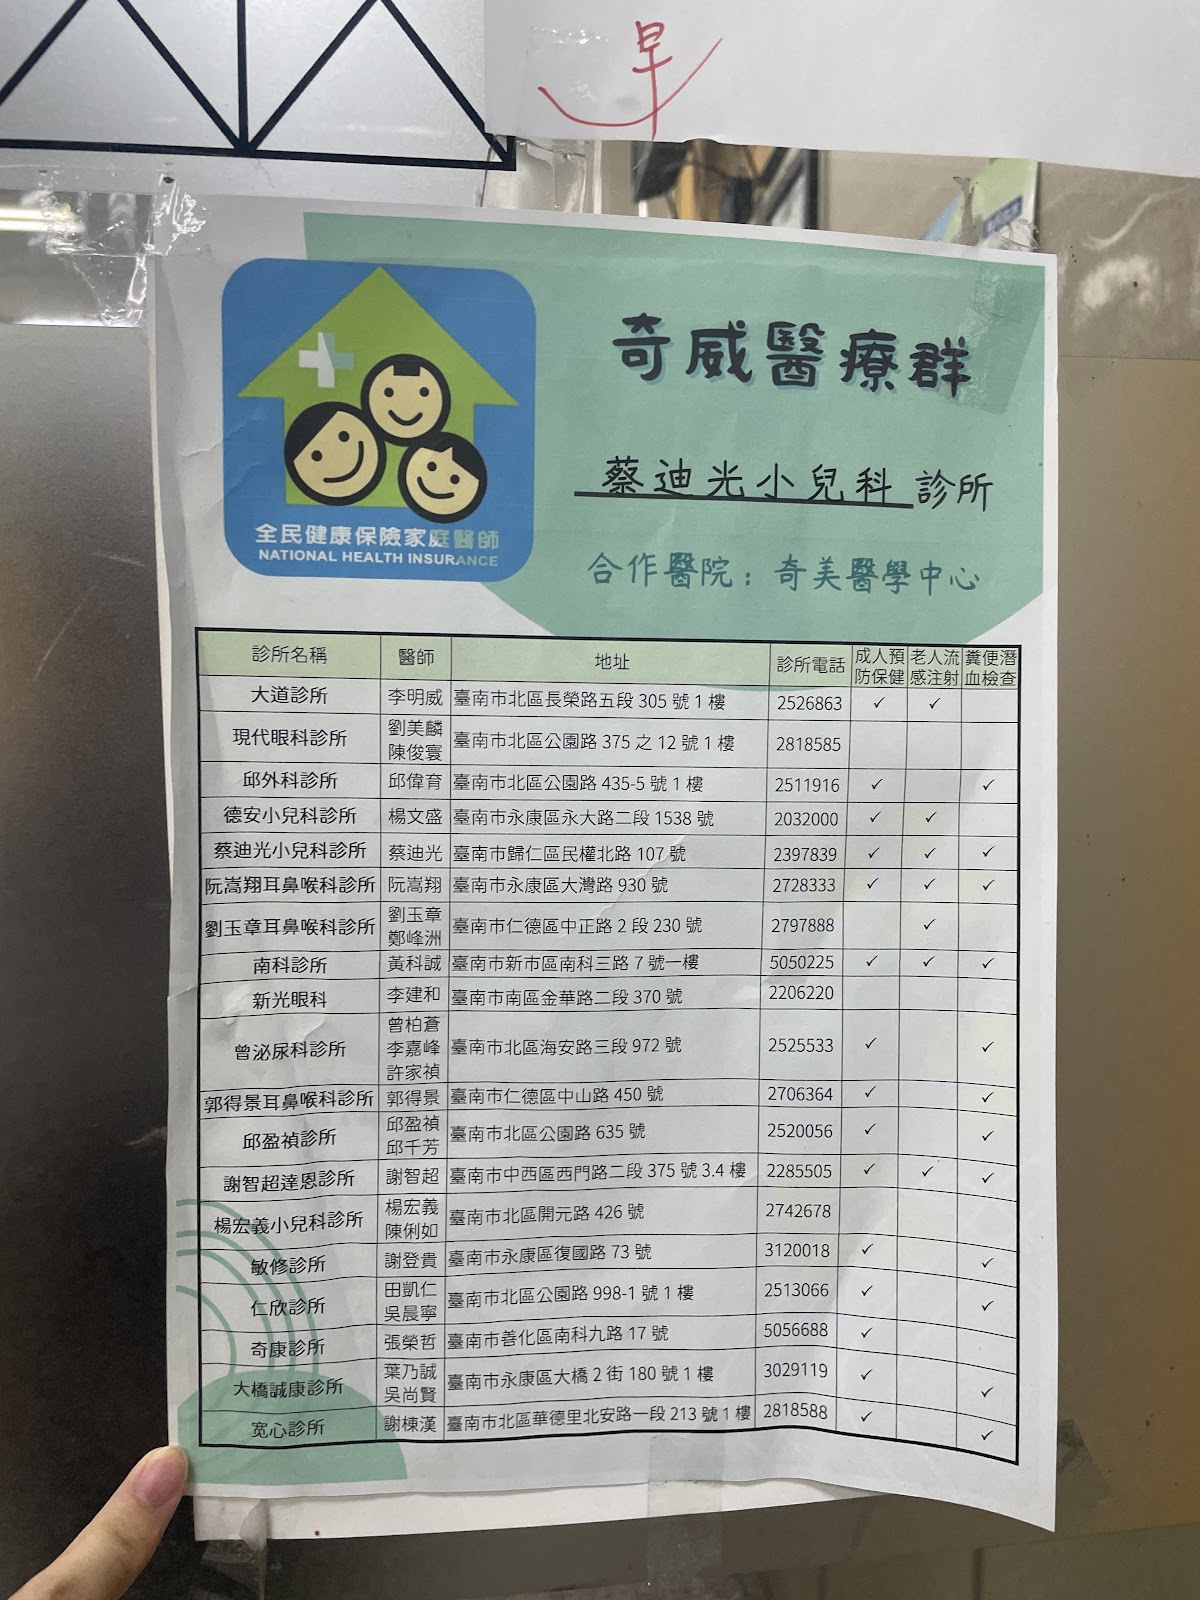 早
全民健康保險家庭醫師
NATIONAL HEALTH INSURANCE
奇威醫療群
蔡迪光小兒科 診所
合作醫院：奇美醫學中心
診所名稱 醫師 地址 診所電話 成人預防保健 老人流感注射 糞便潛血檢查
大道診所 李明威 臺南市北區長榮路五段 305 號 1 樓 2526863 ✓ ✓
現代眼科診所 劉美麟 陳俊寰 臺南市北區公園路 375 之 12 號 1 樓 2818585
邱外科診所 邱偉育 臺南市北區公園路 435-5 號 1 樓 2511916 ✓ ✓
德安小兒科診所 楊文盛 臺南市永康區永大路二段 1538 號 2032000 ✓ ✓
蔡迪光小兒科診所 蔡迪光 臺南市歸仁區民權北路 107 號 2397839 ✓ ✓ ✓
阮嵩翔耳鼻喉科診所 阮嵩翔 臺南市永康區大灣路 930 號 2728333 ✓ ✓ ✓
劉玉章耳鼻喉科診所 劉玉章 鄭峰洲 臺南市仁德區中正路 2 段 230 號 2797888 ✓
南科診所 黃科誠 臺南市新市區南科三路 7 號一樓 5050225 ✓ ✓ ✓
新光眼科 李建和 臺南市南區金華路二段 370 號 2206220
曾泌尿科診所 曾柏蒼 李嘉峰 許家禎 臺南市北區海安路三段 972 號 2525533 ✓ ✓
郭得景耳鼻喉科診所 郭得景 臺南市仁德區中山路 450 號 2706364 ✓ ✓
邱盈禎診所 邱盈禎 邱千芳 臺南市北區公園路 635 號 2520056 ✓ ✓
謝智超達恩診所 謝智超 臺南市中西區西門路二段 375 號 3.4 樓 2285505 ✓ ✓ ✓
楊宏義小兒科診所 楊宏義 陳俐如 臺南市北區開元路 426 號 2742678
敏修診所 謝登貴 臺南市永康區復國路 73 號 3120018 ✓ ✓
仁欣診所 田凱仁 吳晨寧 臺南市北區公園路 998-1 號 1 樓 2513066 ✓ ✓
奇康診所 張榮哲 臺南市善化區南科九路 17 號 5056688 ✓
大橋誠康診所 葉乃誠 吳尚賢 臺南市永康區大橋 2 街 180 號 1 樓 3029119 ✓ ✓
宽心診所 謝棟漢 臺南市北區華德里北安路一段 213 號 1 樓 2818588 ✓ ✓